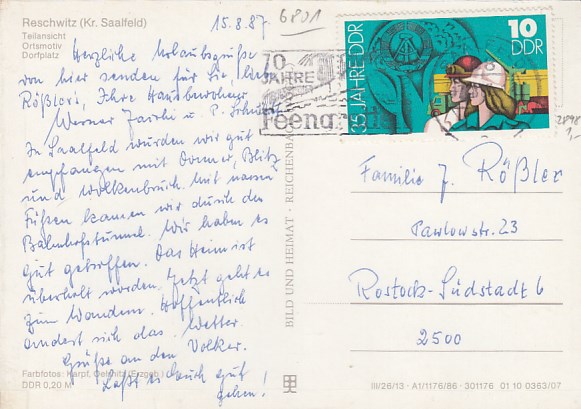 Reschwitz (Kr. Saalfeld)
Teilansicht
Ortsmotiv
Dorfplatz
15.8.87
6801
Herzliche Urlaubsgrüße
von hier senden für Sie, lieber
Rößlers, Ihre Hausbewohner
Werner u. P.
In Saalfeld wurden wir gut
empfangen mit Donner, Blitz
und Wolkenbruch. Mit nassen
Füßen kamen wir durch den
Bahnhofstunnel. Wir haben es
gut getroffen. Das Heim ist
überholt worden. Jetzt geht es
zum Wandern. Hoffentlich
ändert sich das Wetter.
Grüße an den Volker.
Laßt es Euch gut
gehen!
Farbfotos: Karpf, Oelsnitz (Erzgeb.)
DDR 0,20 M
BILD UND HEIMAT · REICHENBACH
70
JAHRE
Feengro
35 JAHRE DDR
10
DDR
2898
1,-
Familie J. Rößler
Pawlowstr. 23
Rostock-Südstadt 6
2500
III/26/13 · A1/1176/86 · 301176 01 10 0363/07